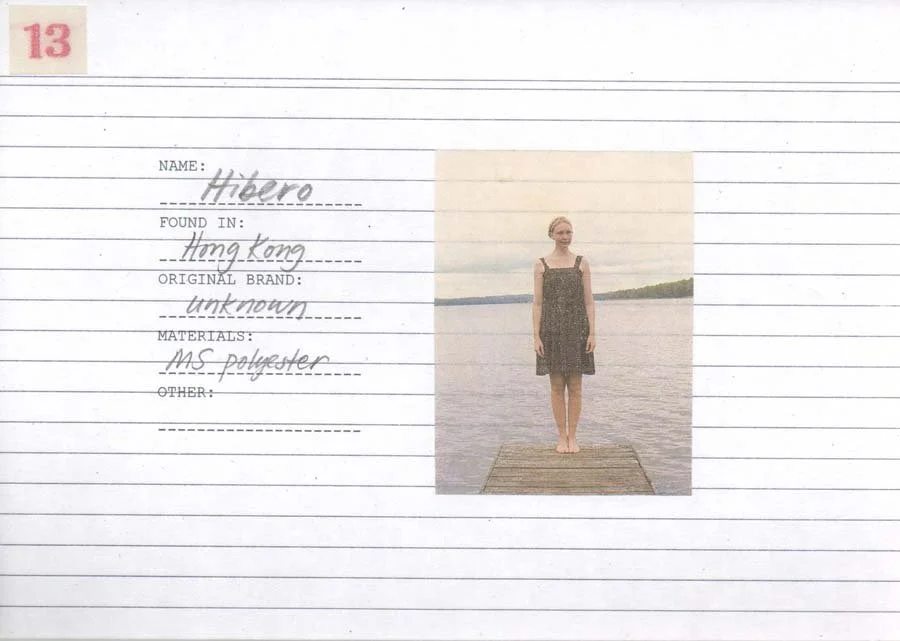 13
NAME:
Hibero
FOUND IN:
Hong Kong
ORIGINAL BRAND:
unknown
MATERIALS:
MS polyester
OTHER: